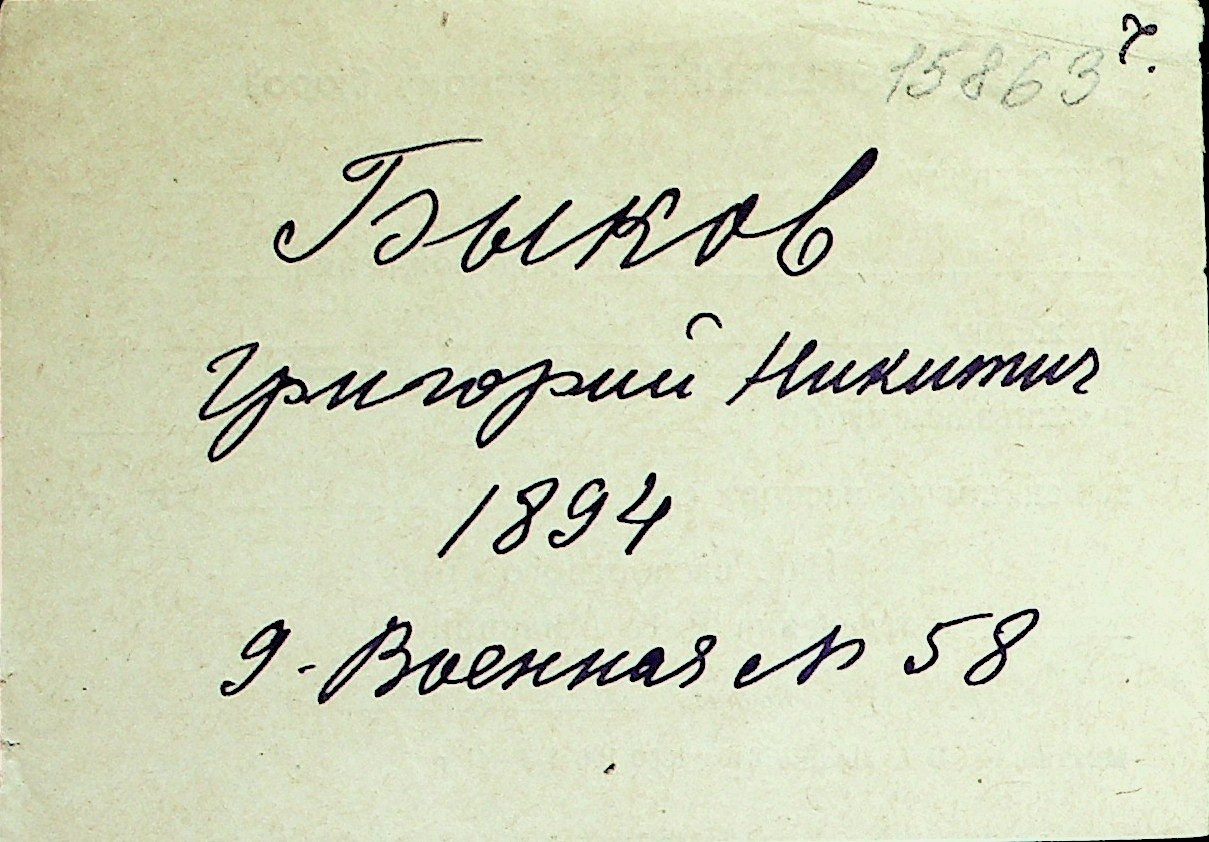 15863 ч.
Быков
Григорий Никитич
1894
9-Военная № 58